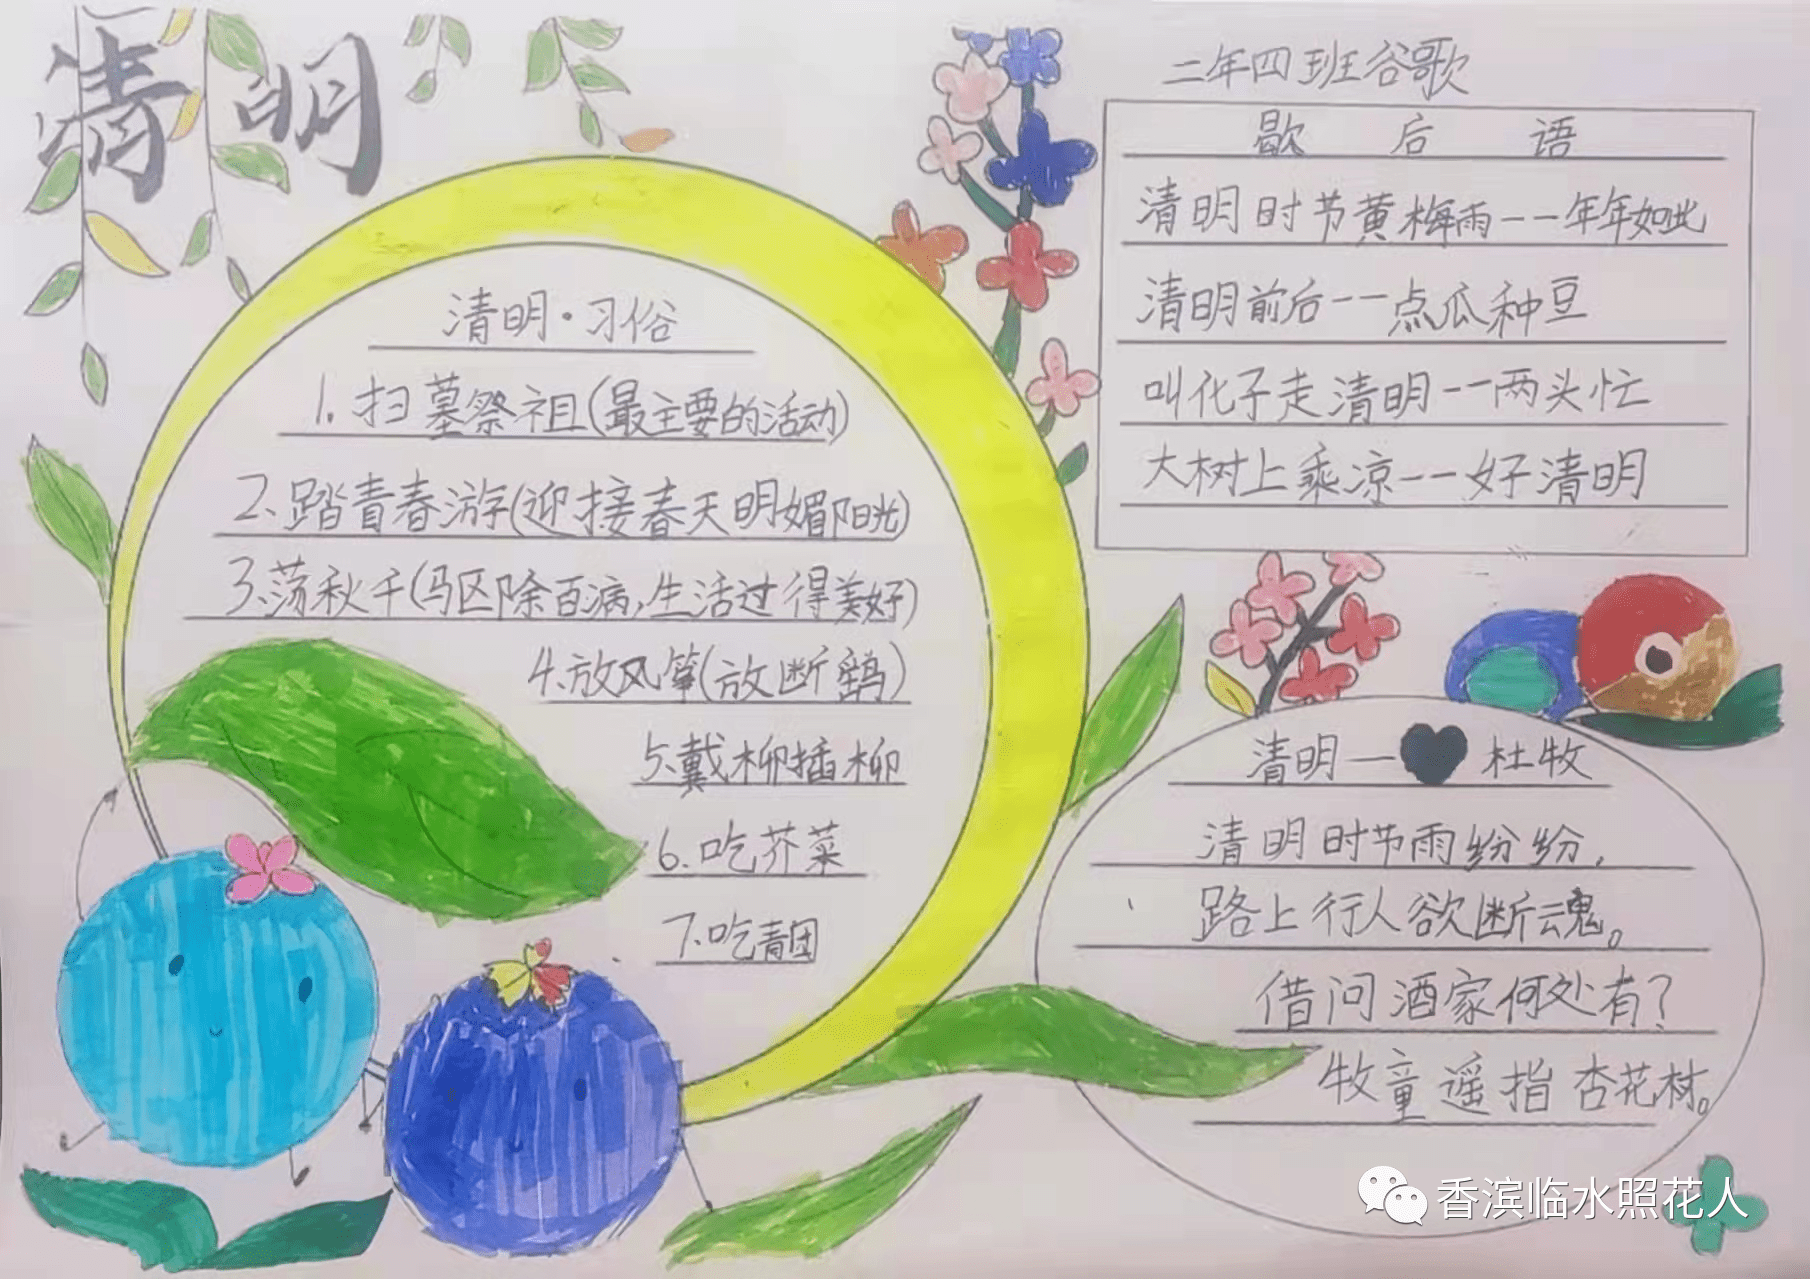 清明
二年四班谷歌
清明·习俗
1.扫墓祭祖(最主要的活动)
2、踏青春游(迎接春天明媚阳光)
3、荡秋千(驱除百病,生活过得美好)
4、放风筝(放断鹞)
5、戴柳插柳
6、吃芥菜
7、吃青团
歇后语
清明时节黄梅雨——年年如此
清明前后——点瓜种豆
叫化子走清明——两头忙
大树上乘凉——好清明
清明—杜牧
清明时节雨纷纷,
路上行人欲断魂。
借问酒家何处有?
牧童遥指杏花材。
香滨临水照花人